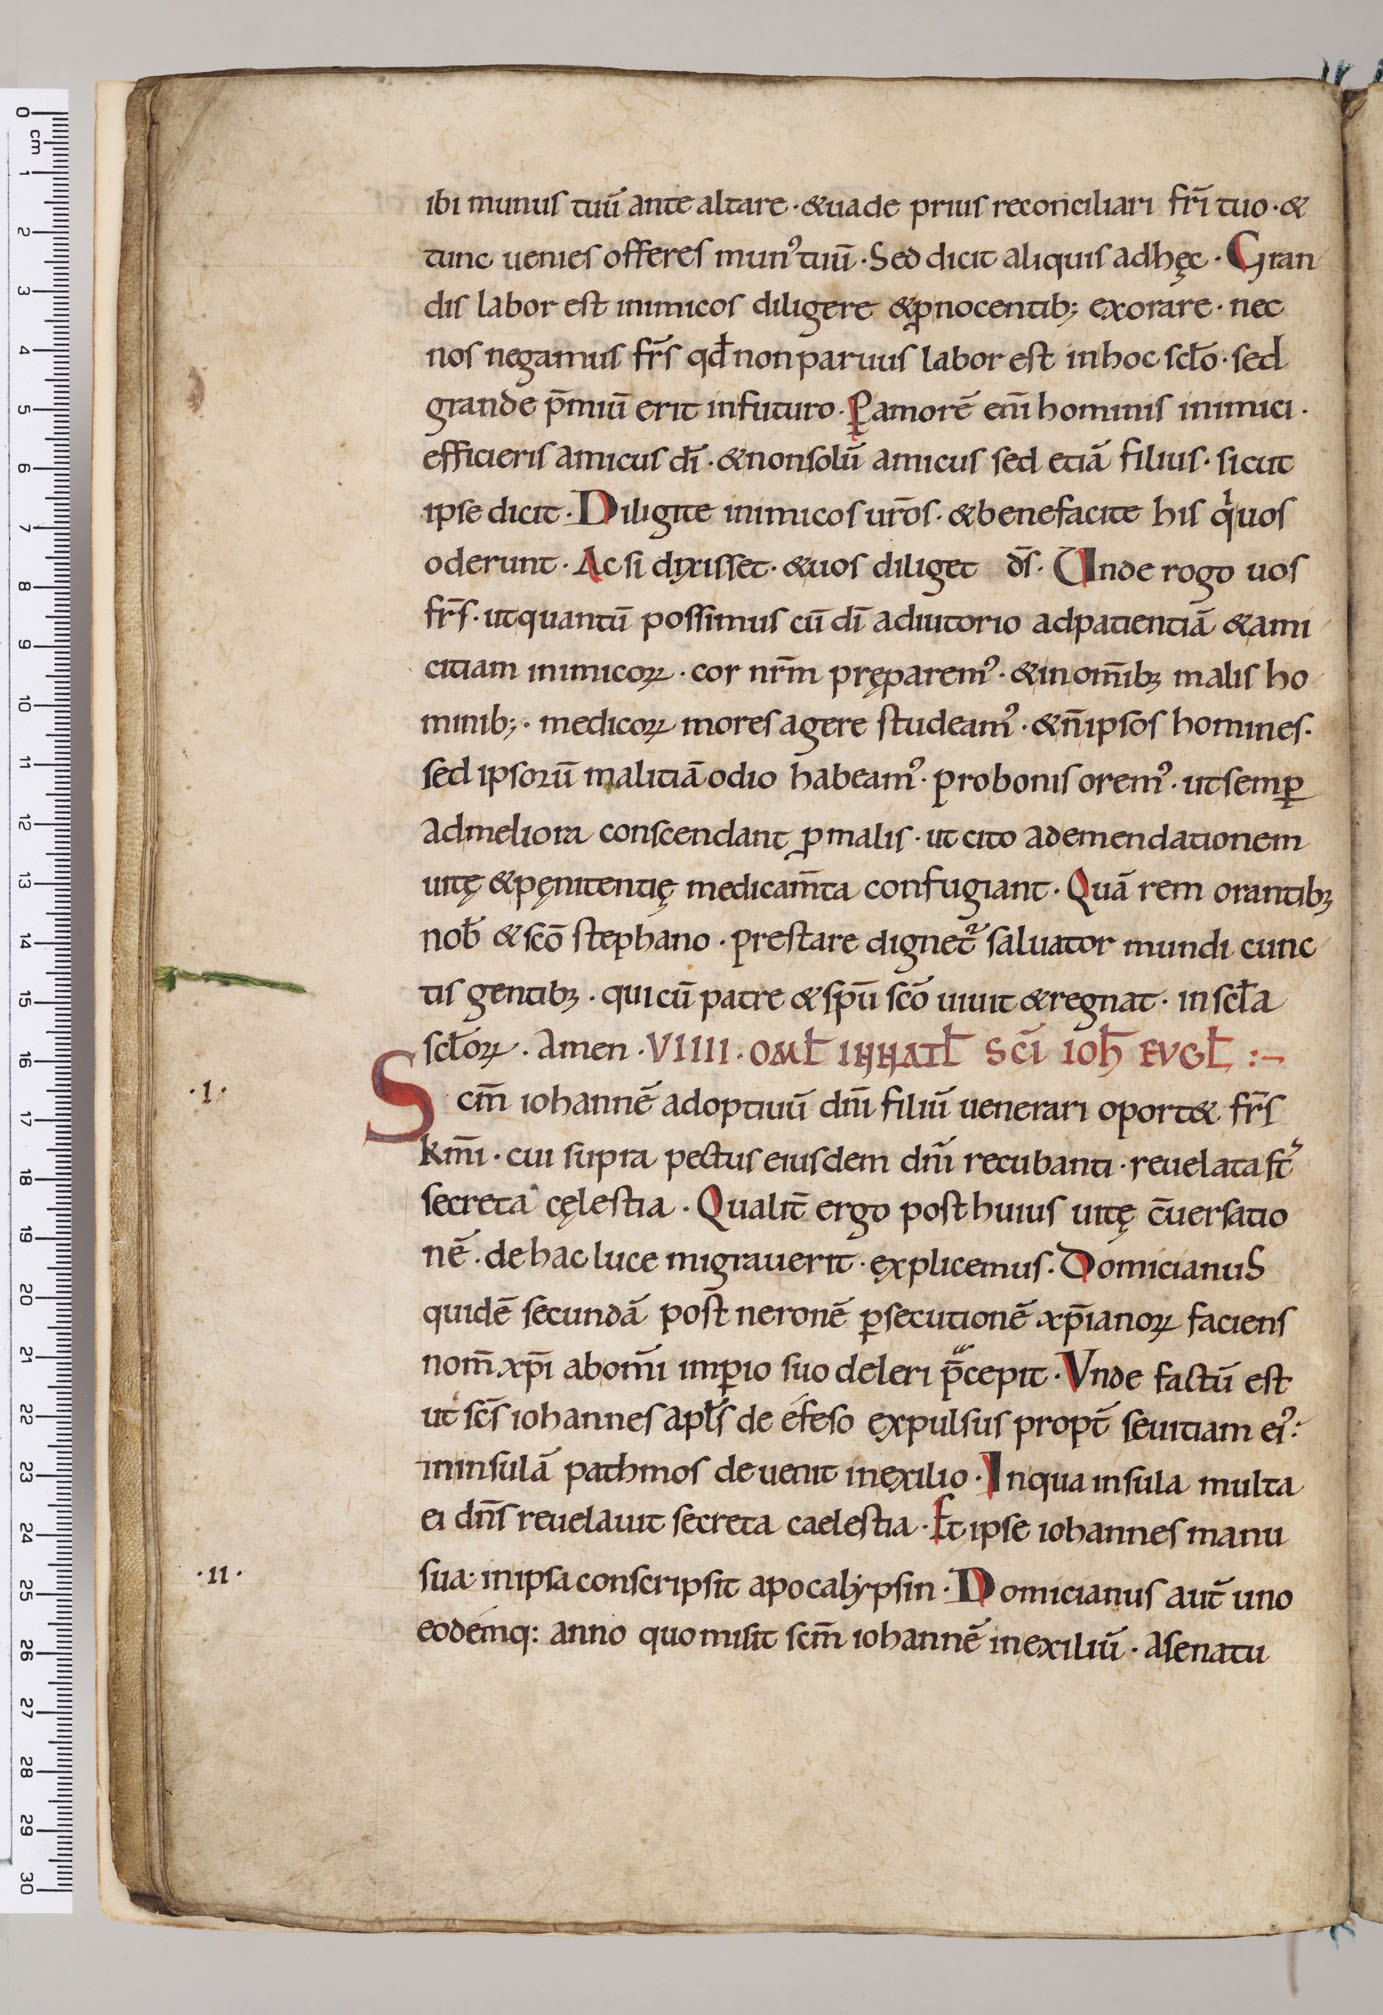 ibi munus tuū ante altare · & uade prius reconciliari fr̄i tuo · &
tunc uenies offeres munꝰ tuū · Sed dicit aliquis ad hęc · Gran
dis labor est inimicos diligere & ꝓ nocentib; exorare · nec
nos negamus fr̄s qđ non paruus labor est in hoc scło · sed
grande p̄miū erit in futuro · Ꝑ amorē eni̅ hominis inimici ·
efficieris amicus dī · & non solū amicus sed etiā filius · sicut
ipse dicit · Diligite inimicos ur̄os · & benefacite his qⁱ uos
oderunt · Ac si dixisset · & uos diliget d̄s · Unde rogo uos
fr̄s · ut quantū possimus cū dī adiutorio ad patientiā & ami
citiam inimicoꝝ · cor nr̄m pręparemꝰ · & in om̄ibꝫ malis ho
minib; · medicoꝝ mores agere studeamꝰ · & n̄ ipsos homines ·
sed ipsorū malitiā odio habeamꝰ · pro bonis oremꝰ · ut semꝑ
ad meliora conscendant ꝓ malis · ut cito ad emendationem
uitę & pęnitentię medicam̄ta confugiant · Quā rem orantibꝫ
nob̄ & scō stephano · prestare dignet᷑ saluator mundi cunc
tis gentibꝫ · qui cū patre & sp̄u scō uiuit & regnat · in scła
scłoꝝ · Amen · VIIII · OMƚ IN NATƚ SC̄I IOH̄ EVGƚ :¬
·I·
Scm̄ iohannē adoptiuū dn̄i filiū uenerari oport& fr̄s
km̄i · cui supra pectus eiusdem dn̄i recubanti · reuelata st᷑
secreta cęlestia · Qualit̄ ergo post huius uitę c̄uersatio
nē · de hac luce migrauerit · explicemus · Domicianus
quidē secundā post neronē ꝑsecutionē xp̄ianoꝝ faciens
nom̄ xp̄i ab om̄i imꝑio suo deleri p̄cepit · Vnde factū est
ut sc̄s iohannes apłs de efeso expulsus propt̄ seuitiam eiꝰ ·
in insulā pathmos deuenit in exilio · In qua insula multa
ei dn̄s reuelauit secreta caelestia · Et ipse iohannes manu
·II·
sua · in ipsa conscripsit apocalypsin · Domicianus aut̄ uno
eodemq: anno quo misit scm̄ iohannē in exiliū · a senatu